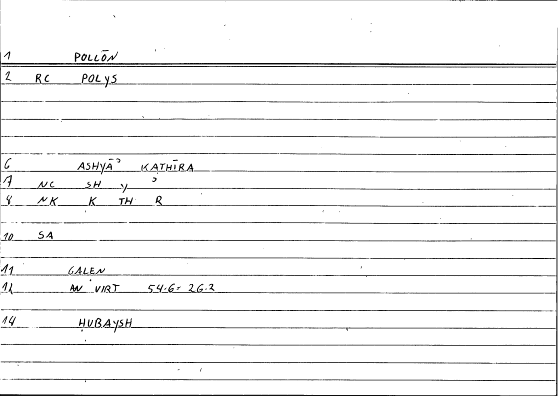 1 POLLŌN
2 RC POLYS
6 ASHYĀʾ KATHĪRA
7 NC SH Y ʾ
8 NK K TH R
10 SA
11 GALEN
12 AN VIRT 54.6 = 26.2
14 HUBAYSH